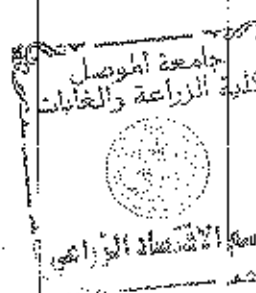 جامعة الموصل
كلية الزراعة والغابات
الاقتصاد الزراعي